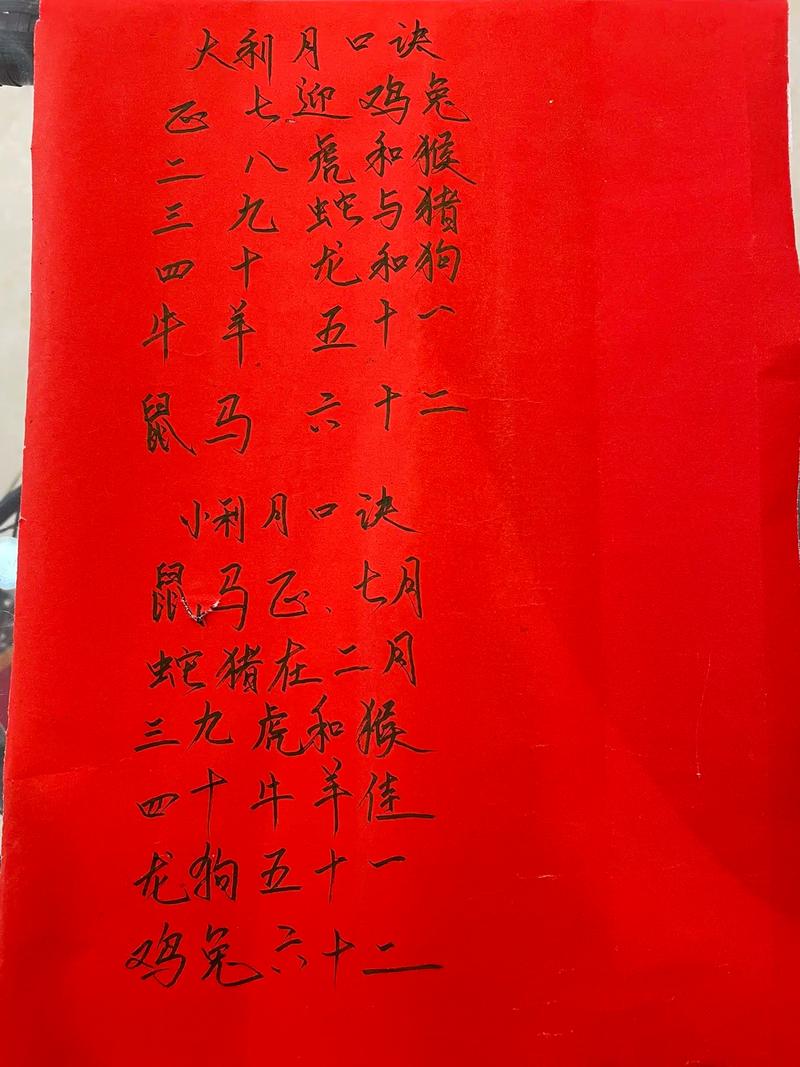 大利月口诀
正七迎鸡兔
二八虎和猴
三九蛇与猪
四十龙和狗
牛羊五十一
鼠马六十二
小利月口诀
鼠马正、七月
蛇猪在二月
三九虎和猴
四十牛羊佳
龙狗五十一
鸡兔六十二